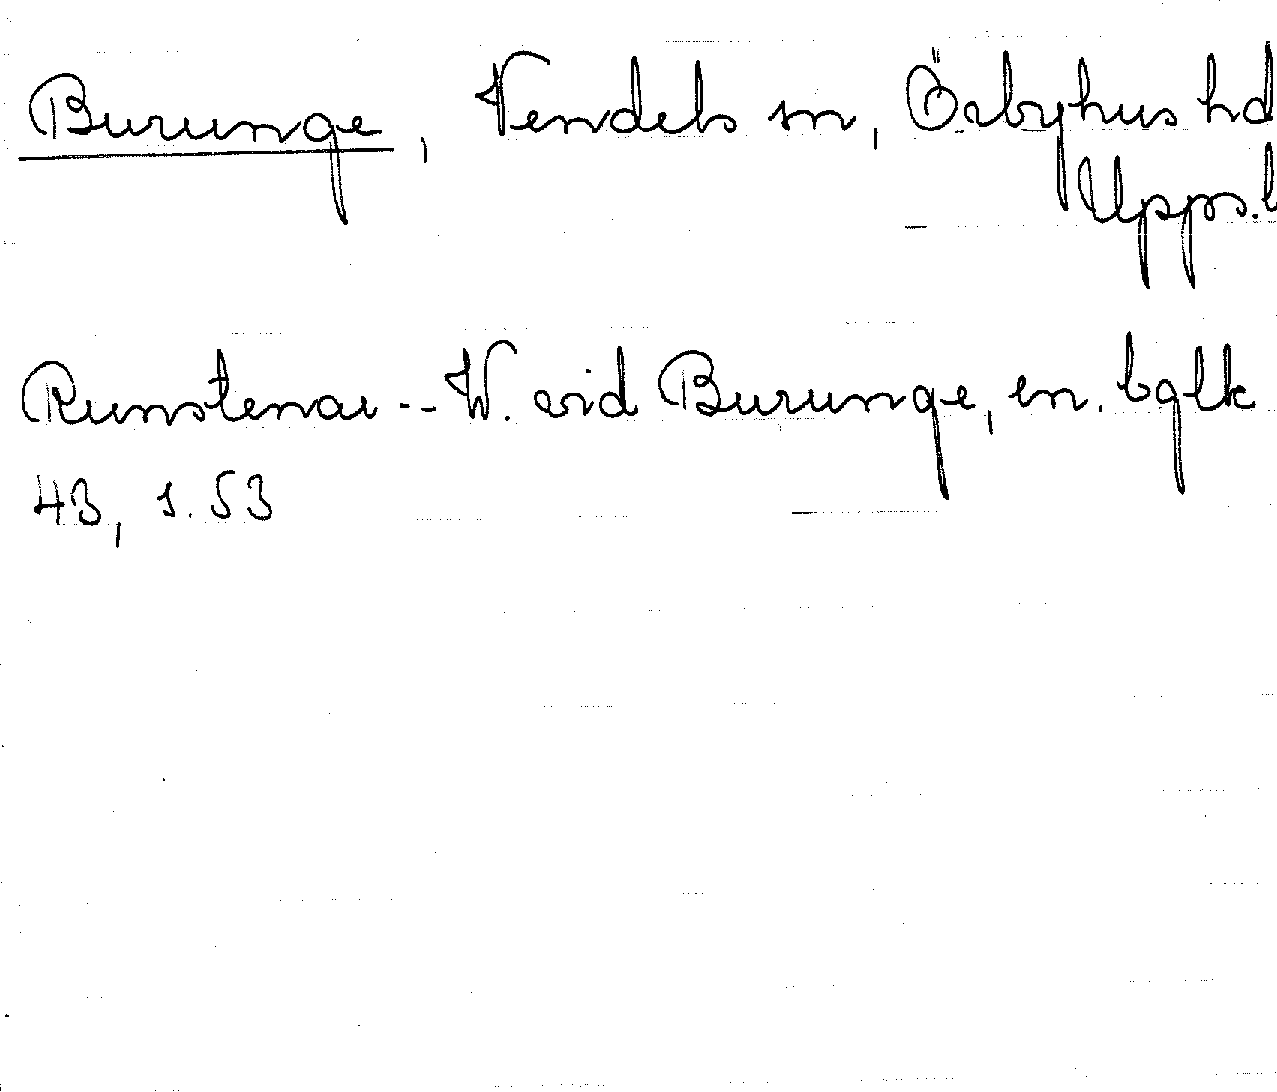 Burunge, Vendels sn, Örbyhus hd
Upps. l
Runstenar -- W. vid Burunge, en. bglk
43, s. 53